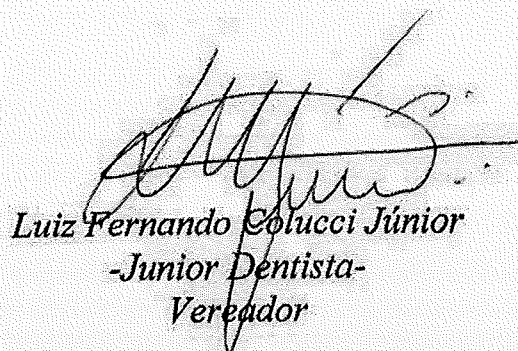 Luiz Fernando Colucci Júnior
-Junior Dentista-
Vereador